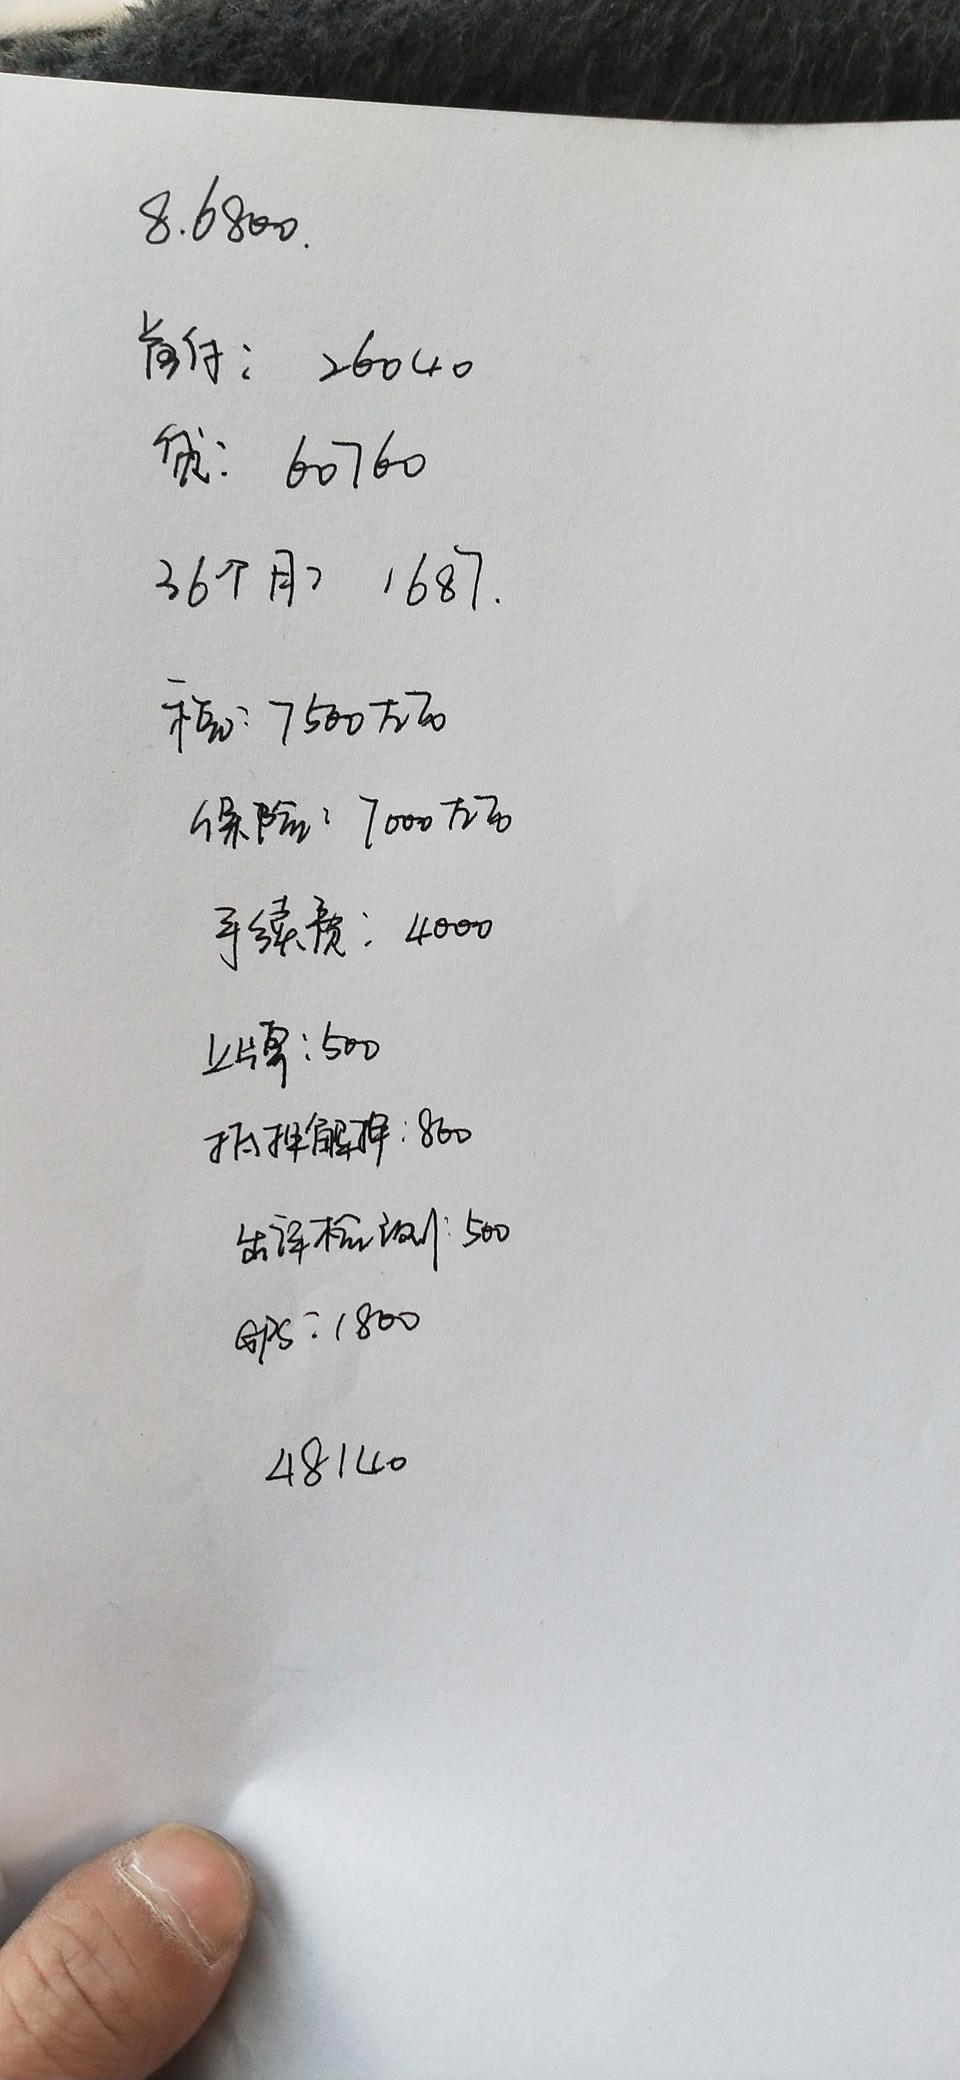 8.6800.
首付: 26040
贷: 60760
36个月: 1687.
税: 7500左右
保险: 7000左右
手续费: 4000
上牌:500
抵押解押:800
出译检测:500
GPS:1800
48140